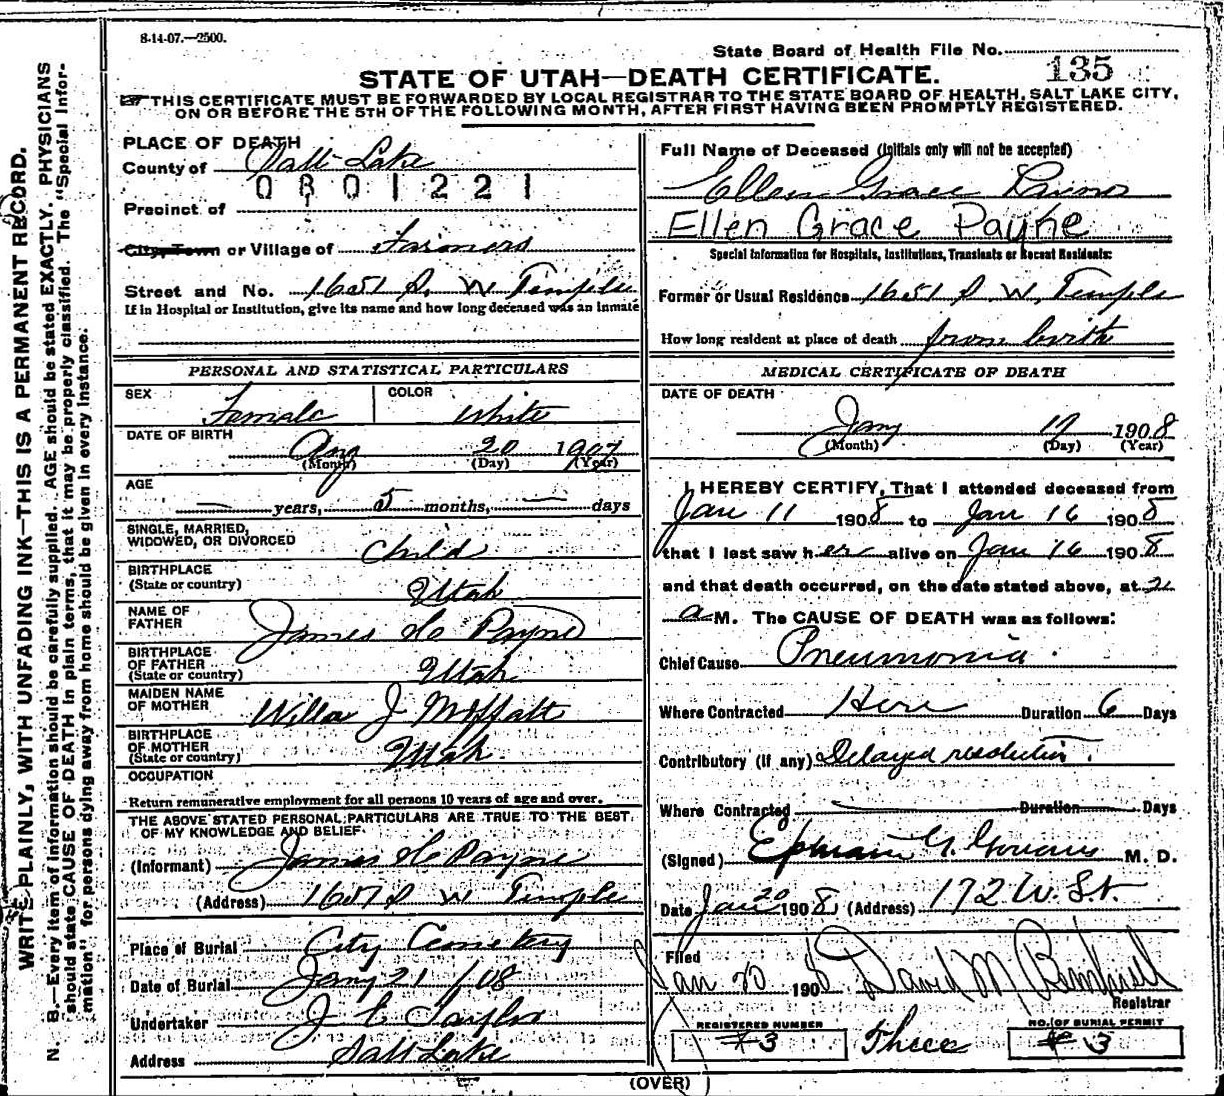 8-14-07.—2500.
State Board of Health File No. 135
STATE OF UTAH—DEATH CERTIFICATE.
THIS CERTIFICATE MUST BE FORWARDED BY LOCAL REGISTRAR TO THE STATE BOARD OF HEALTH, SALT LAKE CITY,
ON OR BEFORE THE 5TH OF THE FOLLOWING MONTH, AFTER FIRST HAVING BEEN PROMPTLY REGISTERED.
WRITE PLAINLY, WITH UNFADING INK—THIS IS A PERMANENT RECORD.
N. B.—Every item of information should be carefully supplied. AGE should be stated EXACTLY. PHYSICIANS
should state CAUSE OF DEATH in plain terms, that it may be properly classified. The "Special Infor-
mation" for persons dying away from home should be given in every instance.
PLACE OF DEATH
County of Salt Lake
0801221
Precinct of
City, Town or Village of Farmers
Street and No. 1651 S. W Temple
If in Hospital or Institution, give its name and how long deceased was an inmate
PERSONAL AND STATISTICAL PARTICULARS
SEX Female COLOR White
DATE OF BIRTH Aug 20 1907
(Month) (Day) (Year)
AGE
— years, 5 months, — days
SINGLE, MARRIED,
WIDOWED, OR DIVORCED Child
BIRTHPLACE
(State or country) Utah
NAME OF
FATHER James H Payne
BIRTHPLACE
OF FATHER
(State or country) Utah
MAIDEN NAME
OF MOTHER Willa J Moffatt
BIRTHPLACE
OF MOTHER
(State or country) Utah.
OCCUPATION
Return remunerative employment for all persons 10 years of age and over.
THE ABOVE STATED PERSONAL PARTICULARS ARE TRUE TO THE BEST
OF MY KNOWLEDGE AND BELIEF.
(Informant) James H Payne
(Address) 1651 S W Temple
Place of Burial City Cemetery
Date of Burial Jany 21/08
Undertaker J E Taylor
Address Salt Lake
Full Name of Deceased (Initials only will not be accepted)
Ellen Grace
Ellen Grace Payne
Special Information for Hospitals, Institutions, Transients or Recent Residents:
Former or Usual Residence 1651 S. W. Temple
How long resident at place of death from birth
MEDICAL CERTIFICATE OF DEATH
DATE OF DEATH
Jany 1908
(Month) (Day) (Year)
I HEREBY CERTIFY, That I attended deceased from
Jan 11 1908 to Jan 16 1908
that I last saw her alive on Jan 16 1908
and that death occurred, on the date stated above, at 2
a M. The CAUSE OF DEATH was as follows:
Chief Cause Pneumonia
Where Contracted Here Duration 6 Days
Contributory (if any) Delayed resolution.
Where Contracted — Duration Days
(Signed) Ephraim G. Gowans M. D.
Date Jan 20 1908, (Address) 172 W. S.t.
Filed
Jan 20 1908 David M
Registrar
REGISTERED NUMBER NO. OF BURIAL PERMIT
#3 Three #3
(OVER)